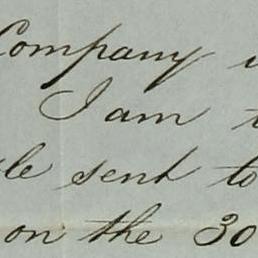 Company
I am
sent to
on the 30